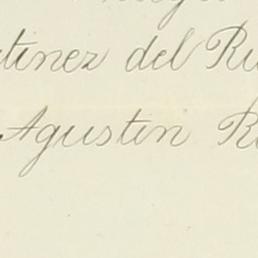 tinez del Ru
Agustin R